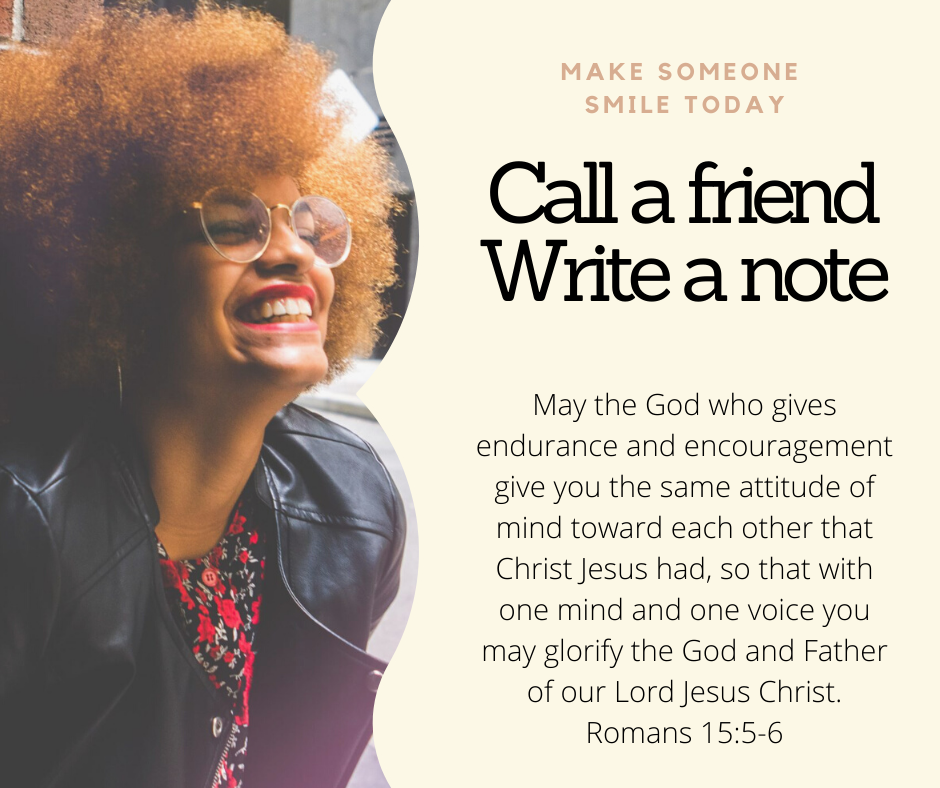 MAKE SOMEONE
SMILE TODAY
Call a friend
Write a note
May the God who gives
endurance and encouragement
give you the same attitude of
mind toward each other that
Christ Jesus had, so that with
one mind and one voice you
may glorify the God and Father
of our Lord Jesus Christ.
Romans 15:5-6